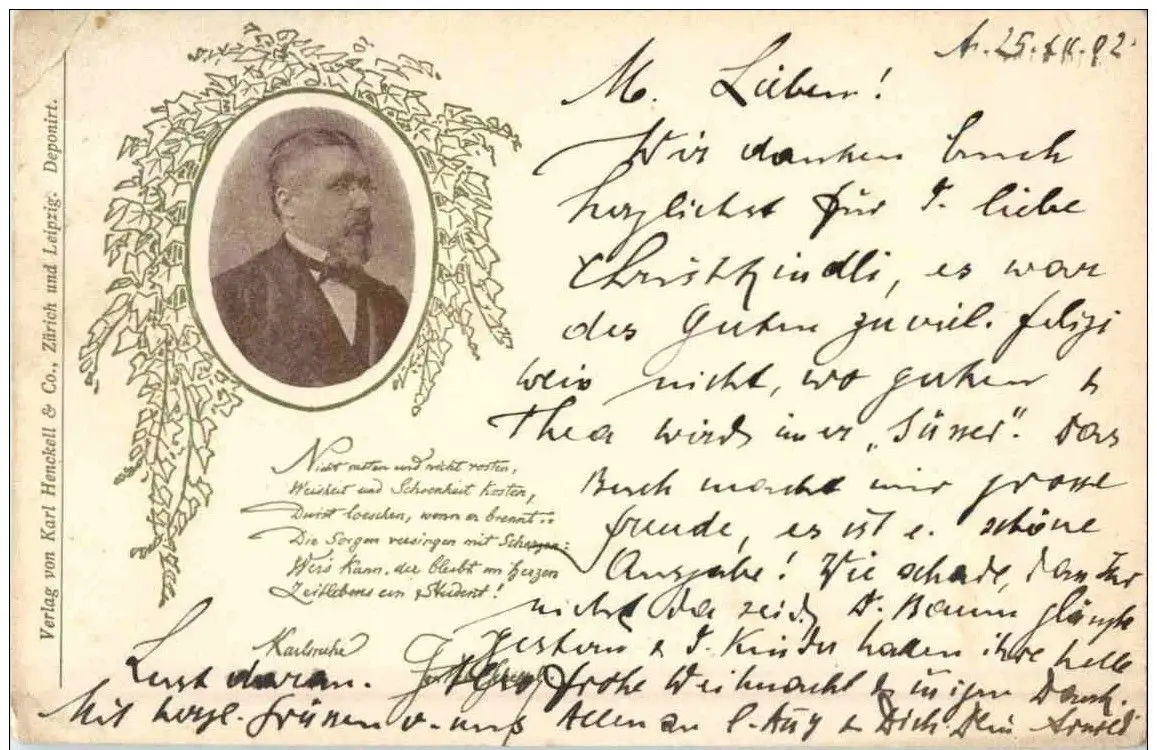 Verlag von Karl Henckell & Co., Zürich und Leipzig. Deponirt.
25. XII. 02.
M. Lieben!
Wir danken Euch
herzlichst für d. liebe
Christkindli, es war
des Guten zuviel. Felizi
weis nicht, wo gucken &
Thea wird immer "Süsser". Das
Buch macht mir grosse
Freude, es ist e. schöne
Ausgabe! Wie schade, dass Ihr
nicht da seid. D. Baum glänzte
gestern & d. Kinder haben ihre helle
Lust daran. Also frohe Weihnacht & innigen Dank.
Mit herzl. Grüssen v. uns Allen an l. & Dich Dein Arnold
Nicht rasten und nicht rosten,
Weisheit und Schoenheit kosten,
Durst loeschen, wenn er brennt::
Die Sorgen versingen mit Scherzen:
Wers kann, der bleibt im Herzen
Zeitlebens ein Student!
Karlsruhe